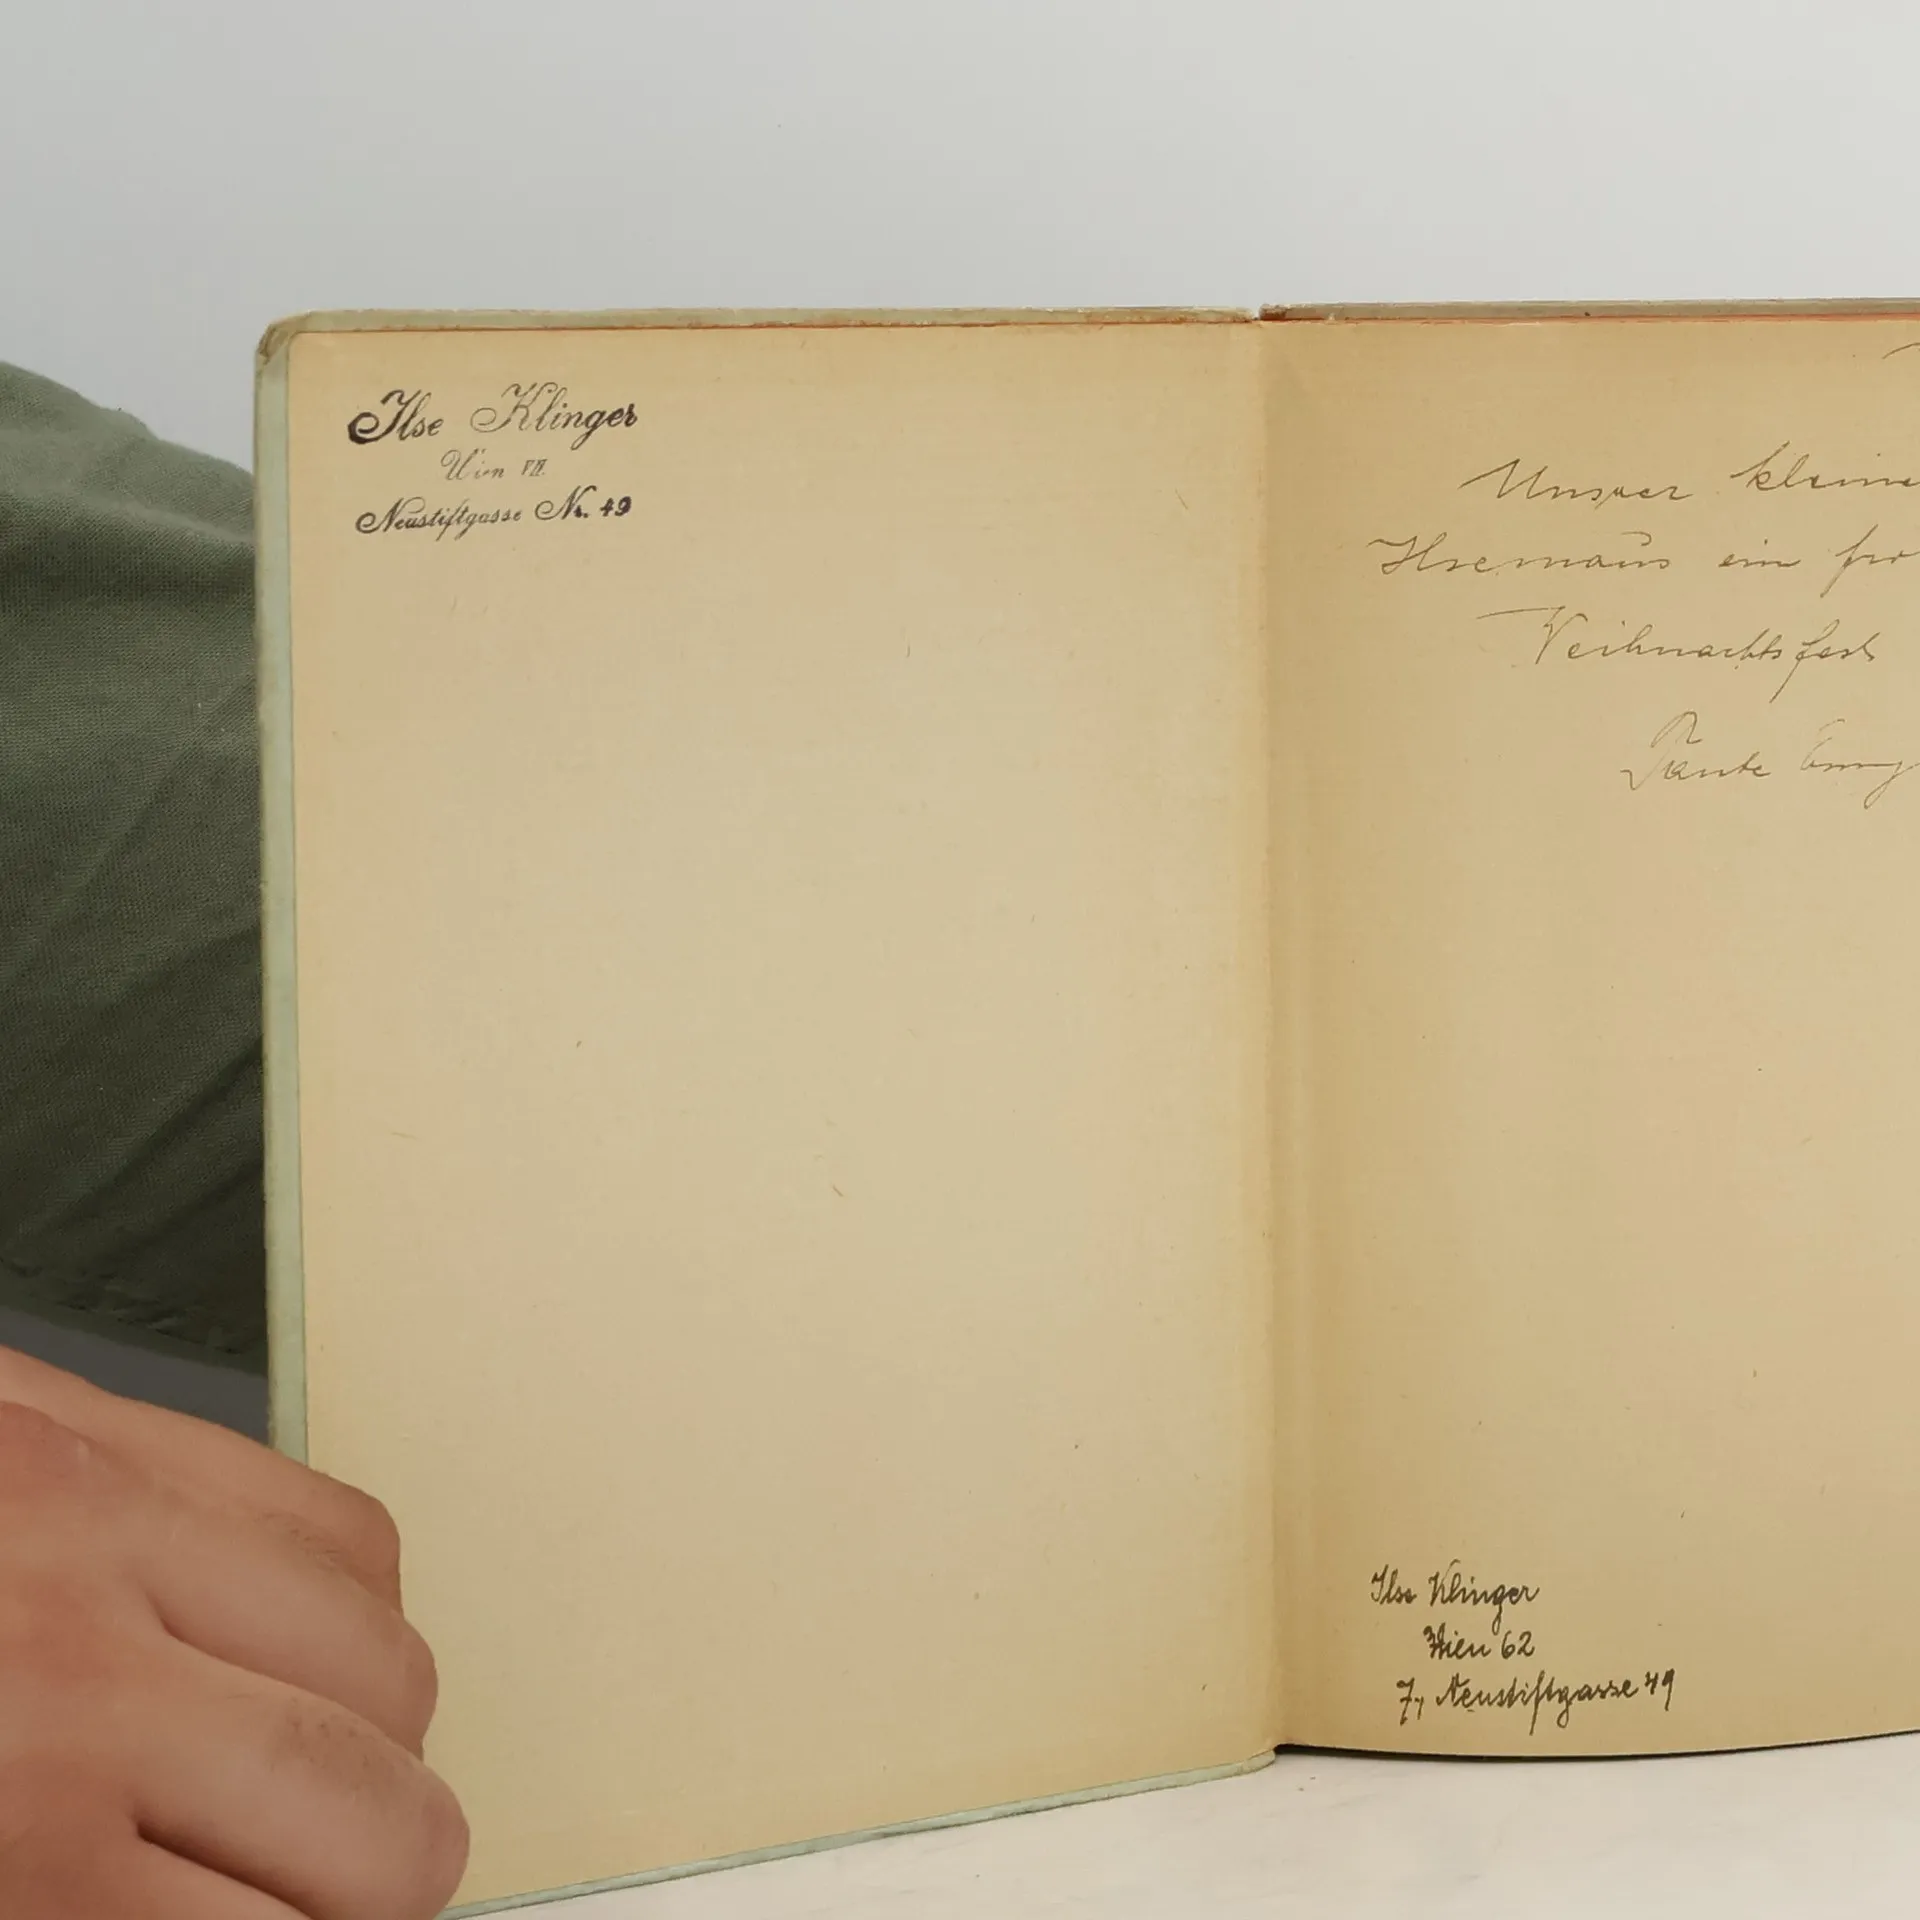 Ilse Klinger
Wien VII.
Neustiftgasse Nr. 49
Unserer kleine
Ilsemaus ein fro
Weihnachtsfest
Tante Emmy
Ilse Klinger
Wien 62
7, Neustiftgasse 49